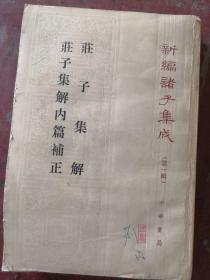 新編諸子集成
（第一輯）
莊子集解
莊子集解內篇補正
中華書局